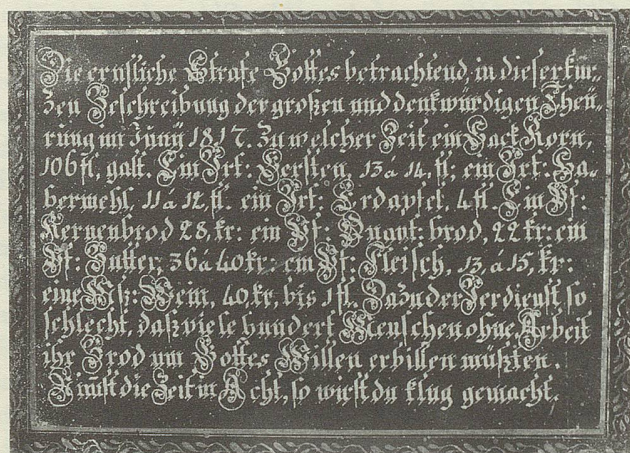 Die ernstliche Strafe Gottes betrachtend, in dieser kur-
zen Beschreibung der großen und denkwürdigen Theu-
rung im Juny 1817. Zu welcher Zeit ein Sack Korn,
106 fl, galt. Ein Vrt: Gersten, 13 á 14, fl; ein Vrt: Ha-
bermehl, 11 á 12, fl. ein Vrt: Erdäpfel, 4 fl. Ein Pf:
Kernenbrod 28, kr: ein Pf: Quant: brod, 22 kr: ein
Pf: Butter, 36 á 40 kr: ein Pf: Fleisch, 13, á 15, kr:
eine Mß: Wein, 40, kr, bis 1 fl. Dazu der Verdienst so
schlecht, daß viele hundert Menschen ohne Arbeit
ihr Brod um Gottes Willen erbitten müßten.
Nimst die Zeit in Acht, so wirst du klug gemacht.